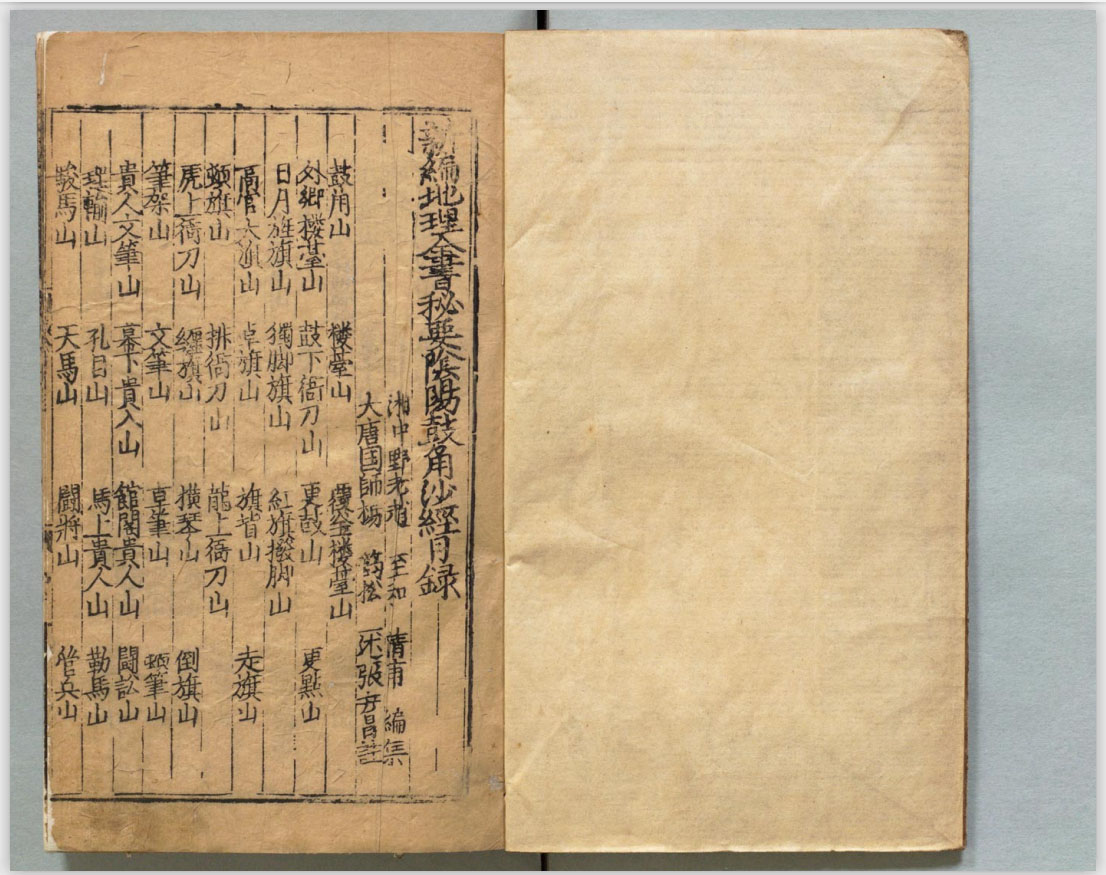 新編地理全書秘要陰陽鼓角沙經目録
湘中野老 至和 清甫 編集
大唐国師楊 筠松 張 昌註
鼓角山 楼䑓山 覆釡楼䑓山
外郷楼䑓山 鼓下衙刀山 更鼓山 更點山
日月旌旗山 獨脚旗山 紅旗撥脚山
高官大旗山 卓旗山 旗山 走旗山
頓旗山 排衙刀山 龍上衙刀山
虎上衙刀山 纒旗山 横琴山 倒旗山
筆架山 文筆山 卓筆山 頓筆山
貴人文筆山 幕下貴人山 館閣貴人山 鬪訟山
輪山 孔目山 馬上貴人山 勒馬山
鞍馬山 天馬山 鬪將山 管兵山